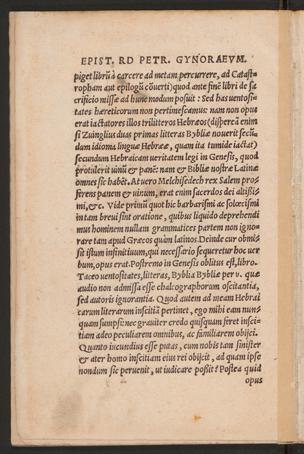 EPIST. RD PETR. GYNORAEVM.
piget librũ à carcere ad metam percurrere, ad Catast-
ropham aut epilogũ cõuerti) quod ante finẽ libri de sa
crificio missæ ad hunc modum posuit: Sed has uentosi-
tates hæreticorum non pertimescamus: nam non opus
erat iactatores illos triliteros Hebræos (disperēā enim
si Zuinglius duas primas litteras Bybliæ nouerit secũ-
dum idioma linguæ Hebrææ, quam ita tumide iactat)
secundum Hebraicam ueritatem legi in Genesis, quod
protulerit uinũ & panẽ: nam & Bibliæ nostræ Latinæ
omnes sic habẽt, At uero Melchisedech rex Salem pro-
ferens panem & uinum, erat enim sacerdos dei altissi-
mi, &c. Vide primũ quot hic barbarismi ac solœcismi
in tam breui sint oratione, quibus liquido deprehendi
mus hominem nullam grammatices partem non igno-
rare tam apud Græcos quàm latinos. Deinde cur obmi-
sit istum infinitiuum, qui necessario sequeretur hoc uer
bum, opus erat. Postremo in Genesis oblitus est, libro.
Taceo uentositates, litteras, Byblia Bybliæ per y. quæ
audio non admissa esse chalcographorum oscitantia,
sed autoris ignorantia. Quod autem ad meam Hebrai
carum literarum inscitiã pertinet, ego mihi eam nun-
quam sumpsi: nec grauiter credo quisquam feret insci-
tiam adeo peculiarem omnibus, ac familiarem obijci.
Quanto iucundius esse putas, cum nobis tam sinister
& ater homo inscitiam eius rei obijcit, ad quam ipse
nondum sic peruenit, ut iudicare possit? Postea quid
opus